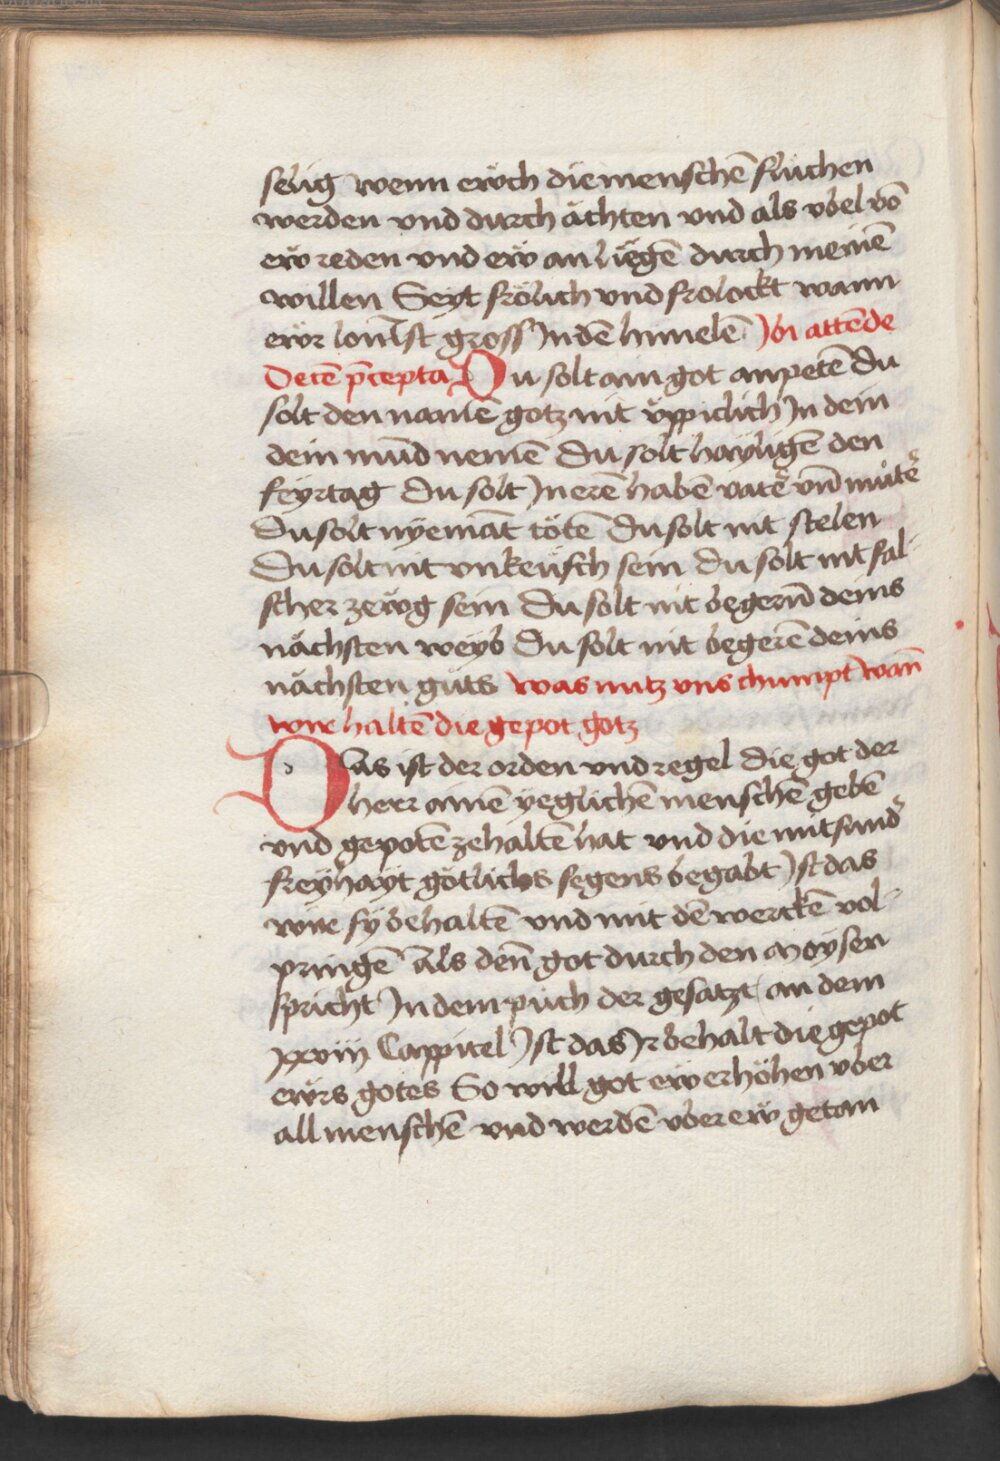 selig wenn ewch die menschē fluchen
werden vnd durch ächten vnd als vbel vō
ew reden vnd ew an liegē durch meinē
willen Seyt frölich vnd frolockt wann
ewr lon ist gross In dē himelē Ibi attēde
Decē p̄cepta Du solt ain got anpetē Du
solt den namē gotz nit üppiclich In dein
dein mūd nemē Du solt hayligē den
feyrtag Du solt In erē habē vatē vn̄ mutē
Du solt nyemāt tötē Du solt nit stelen
Du solt nit vnkeüsch sein Du solt nit fal-
scher zewg sein Du solt nit begern̄ deins
nächsten weyb Du solt nit begerē deins
nächsten guts was nutz vns chumpt wan̄
wir haltē die gepot gotz
Das ist der orden vnd regel die got der
herr ainē yeglichē menschē gebē
vnd gepotē ze haltē hat vnd die mit sund
freyhayt götlichs segens begabt Ist das
wir sy behaltē vnd mit dē werckē vol-
pringē Als den̄ got durch den Moysen
spricht In dem puch der gesatzt an dem
xxviij Cappitel Ist das Ir behalt die gepot
ewrs gotes So will got ew erhöhen vber
all menschē vnd werdē vber ew getan